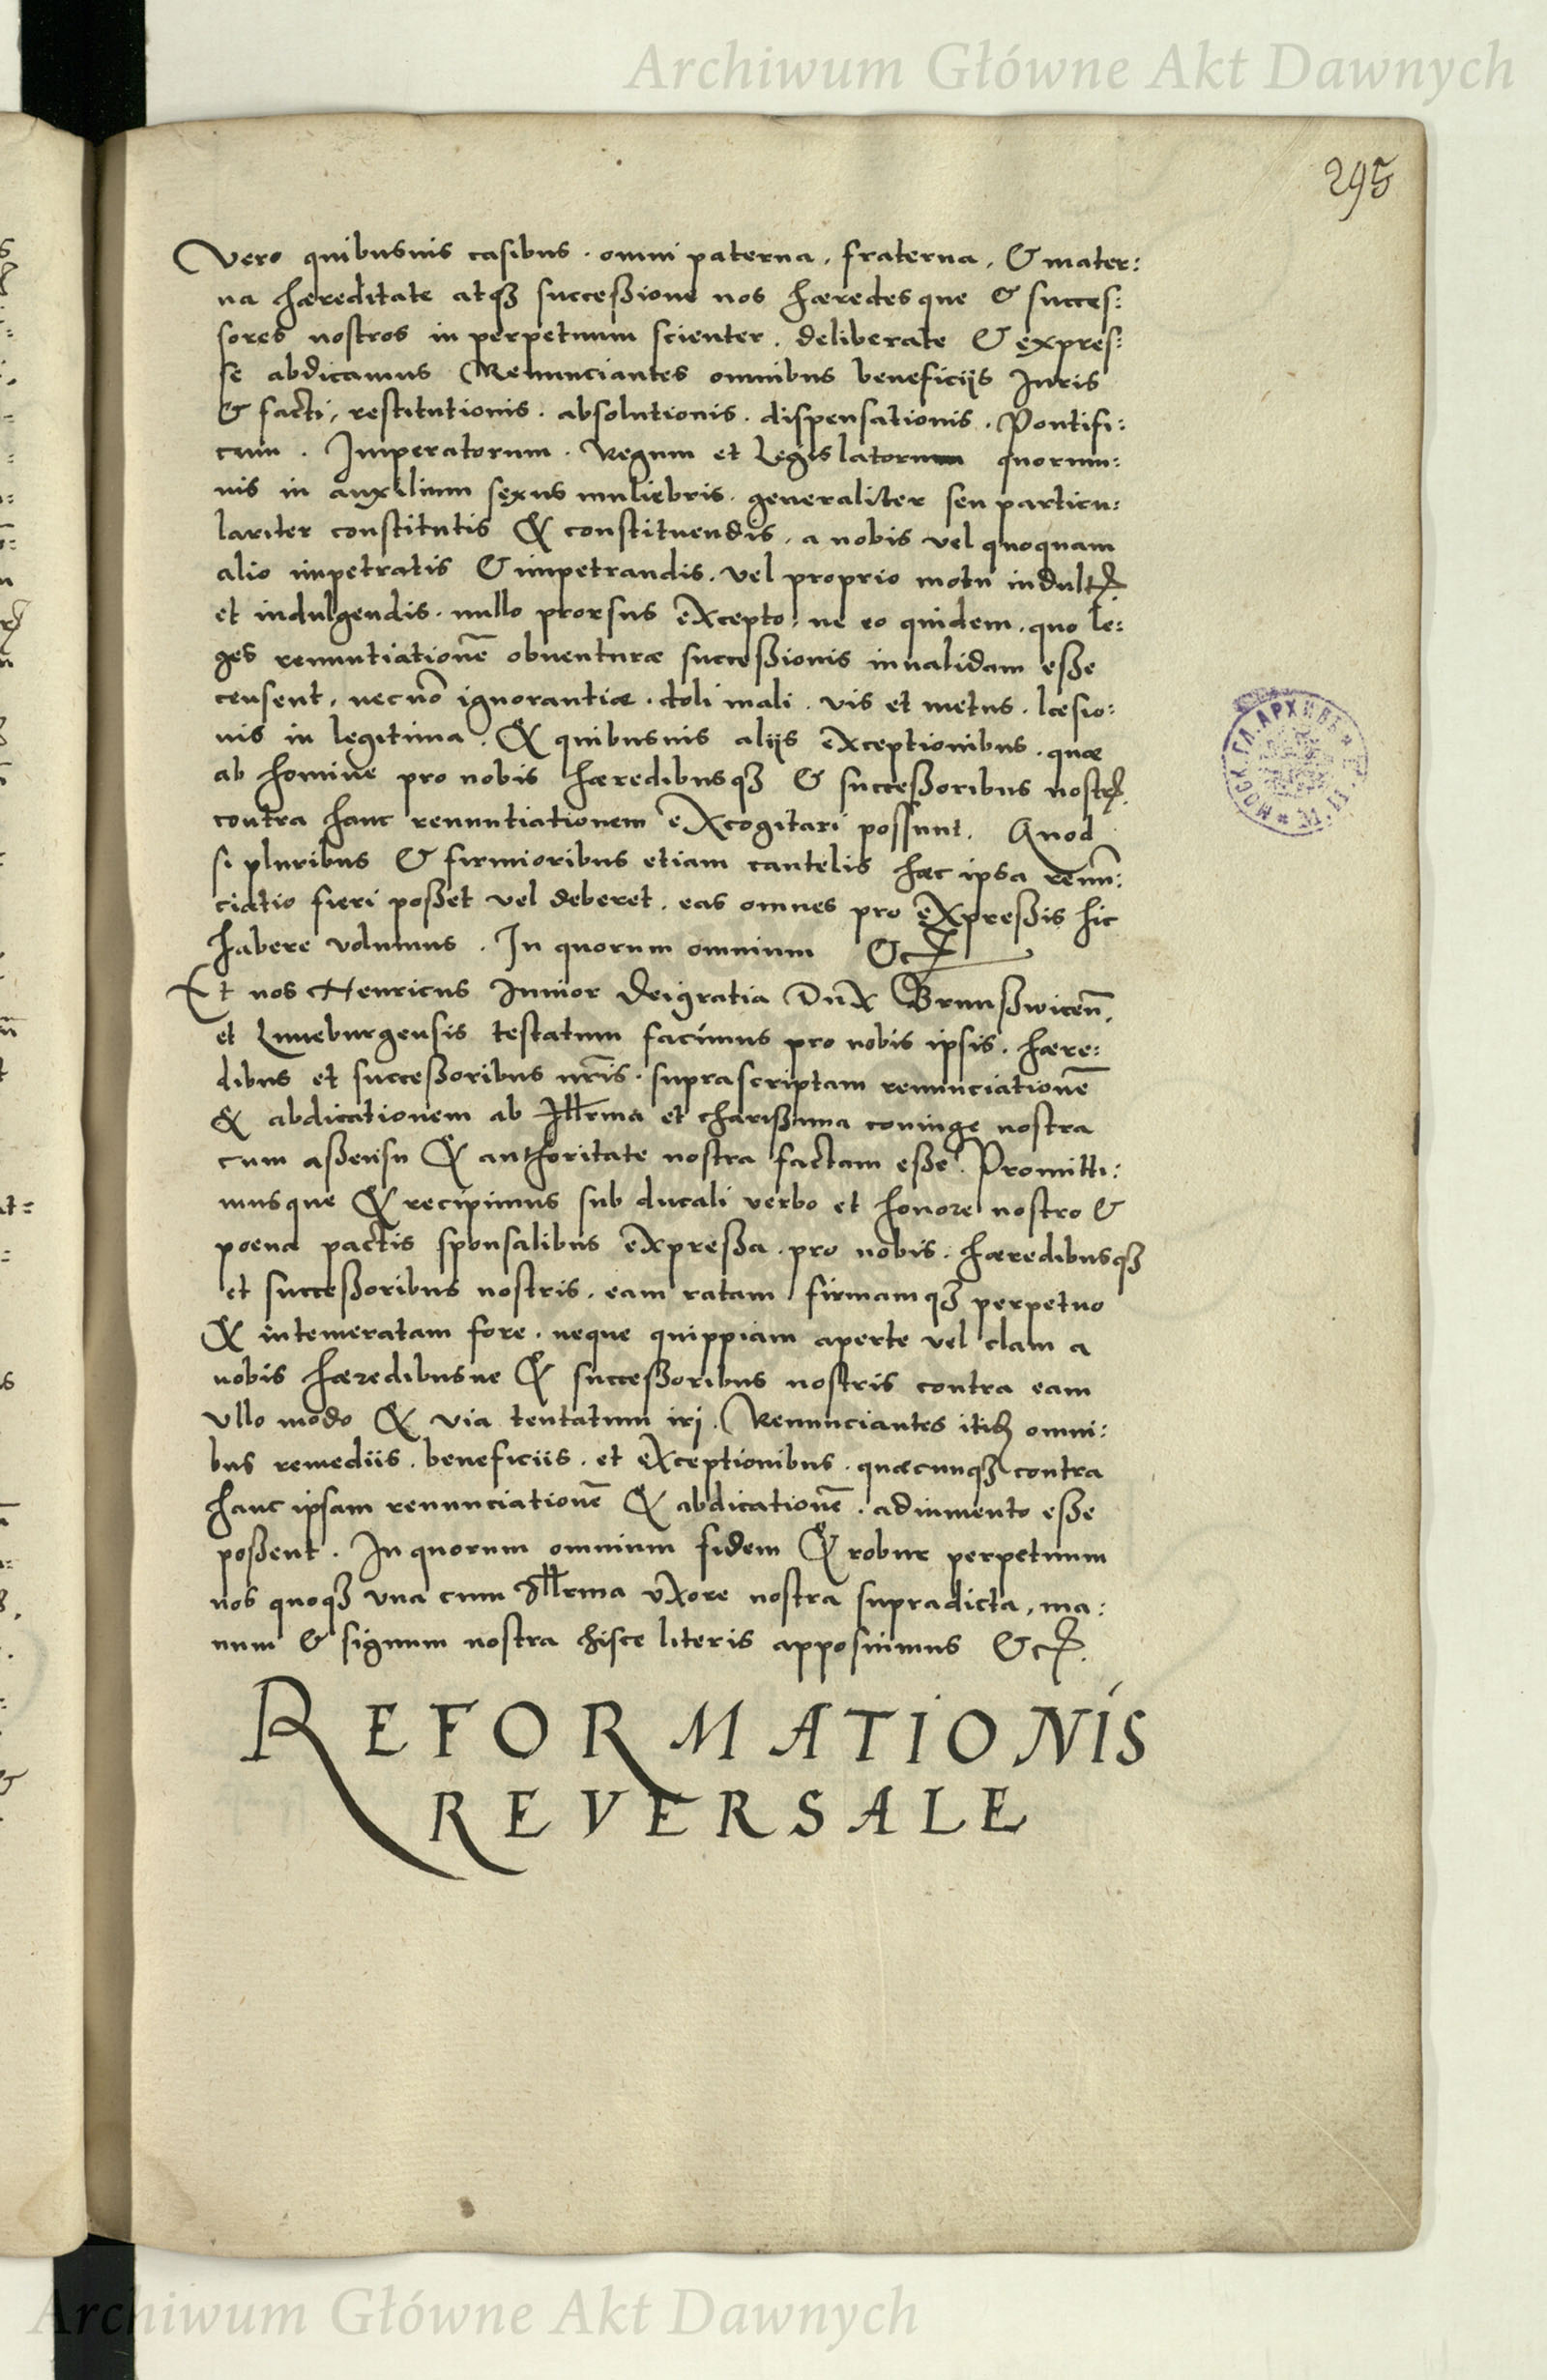 Archiwum Główne Akt Dawnych
295
Vero quibusuis casibus. omni paterna, fraterna, & mater:
na hæreditate atqȝ succeßione nos hæredesque & succes:
sores nostros in perpetuum scienter. deliberate & expres:
se abdicamus Renunciantes omnibus beneficijs Juris
& facti, restitutionis. absolutionis. dispensationis. Pontifi:
cum. Imperatorum. Regum et Legislatorum quorum:
uis in auxilium sexus muliebris. generaliter seu particu:
lariter constitutis & constituendis, a nobis vel quoquam
alio impetratis & impetrandis. vel proprio motu indultꝭ
et indulgendis. nullo prorsus excepto, ne eo quidem, quo le:
ges renuntiationē obuenturæ succeßionis inualidam eße
censent, necnō ignorantiæ. doli mali. vis et metus. læsio:
nis in legitima. & quibusuis alijs exceptionibus. quæ
ab homine pro nobis hæredibusqȝ & succeßoribus nostrꝭ.
contra hanc renuntiationem excogitari possunt. Quod
si pluribus & firmioribus etiam cautelis hæc ipsa renun̄:
ciatio fieri poßet vel deberet. eas omnes pro expreßis hic
habere volumus. In quorum omnium &cꝭ
Et nos Henricus Junior Dei gratia Dux Brunßwiceñ.
et Luneburgensis testatum facimus pro nobis ipsis. hære:
dibus et succeßoribus nr̄is. suprascriptam renunciationē
& abdicationem ab Illrma et charißima coniuge nostra
cum aßensu & authoritate nostra factam eße. Promitti:
musque & recipimus sub ducali verbo et honore nostro &
poena pactis sponsalibus expreßa. pro nobis. hæredibusqȝ
et succeßoribus nostris. eam ratam firmamqȝ perpetuo
& intemeratam fore. neque quippiam aperte vel clam a
nobis hæredibusue & succeßoribus nostris contra eam
vllo modo & via tentatum iri. Renunciantes itidē omni:
bus remediis. beneficiis. et exceptionibus. quæcunqȝ contra
hanc ipsam renunciationē & abdicationē. adiumento eße
poßent. In quorum omnium fidem & robur perpetuum
nos quoqȝ vna cum Illrma vxore nostra supradicta, ma:
num & signum nostra hisce literis apposuimus &cꝭ.
REFORMATIONIS
REVERSALE
Archiwum Główne Akt Dawnych